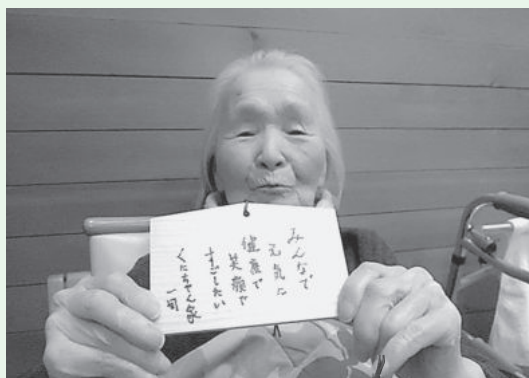 みんなで
元気に
健康で
笑顔で
すごしたい
くにちゃん家
一句